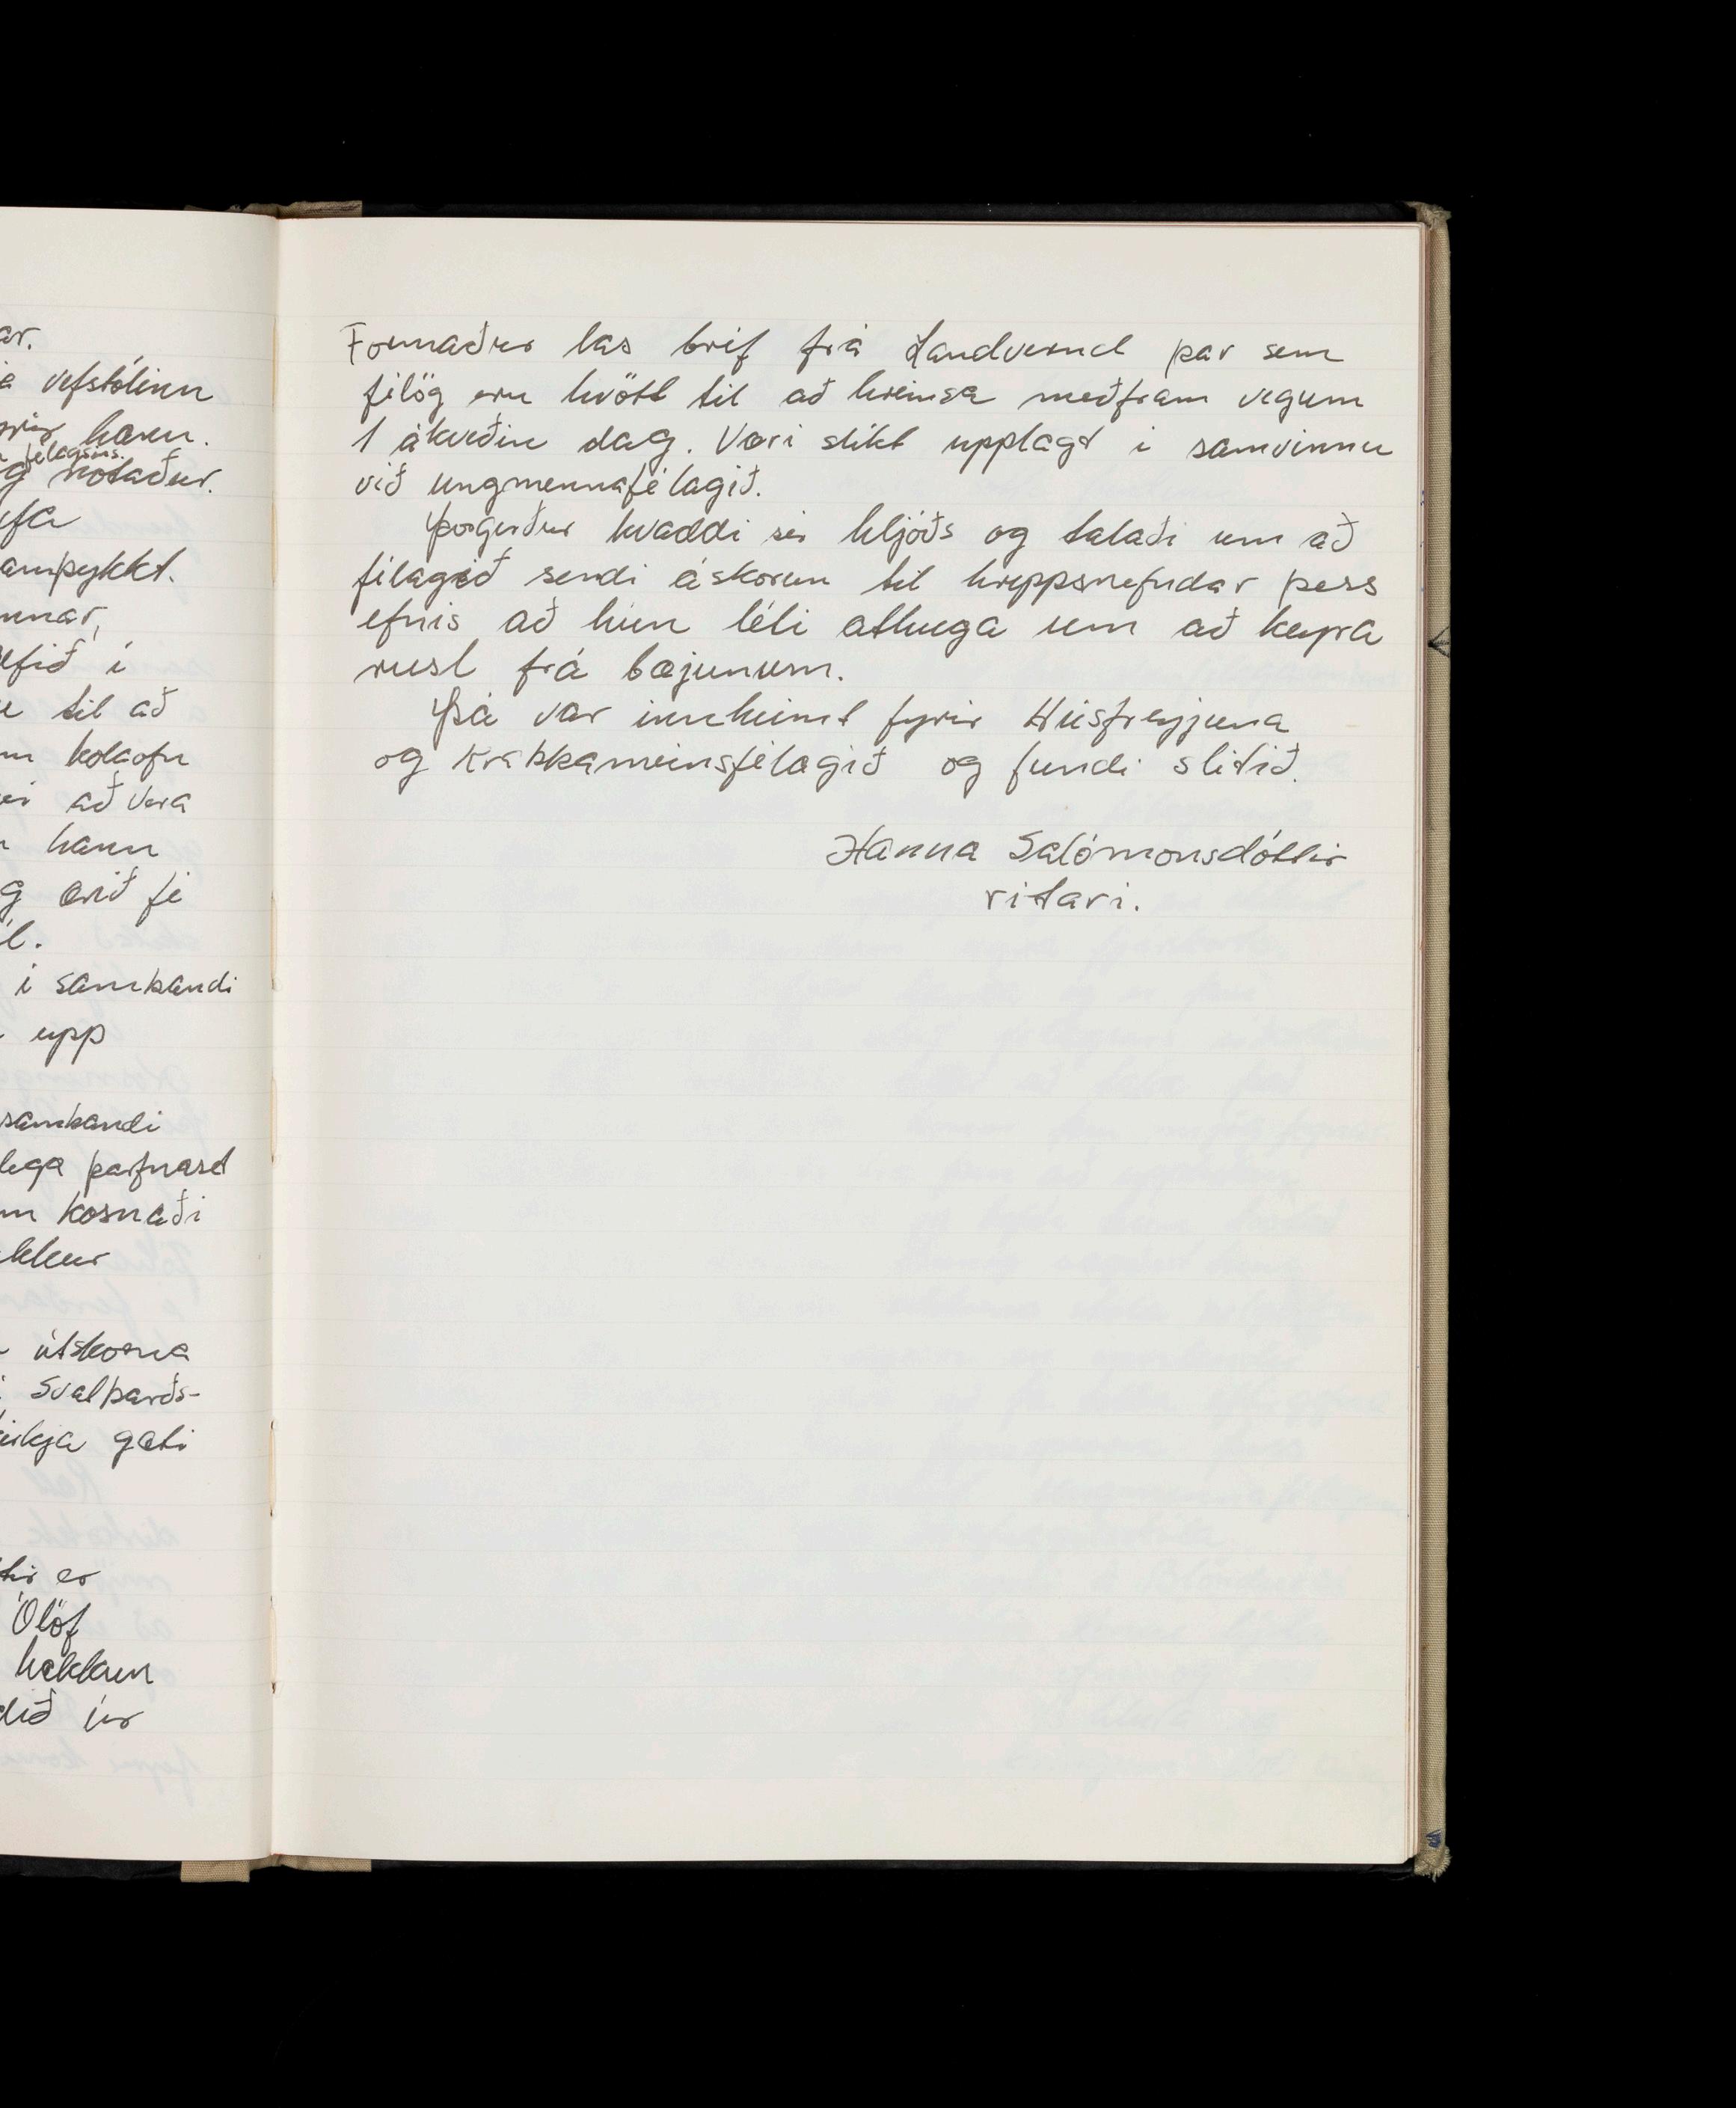 ar.
vefstólinn
hann.
félagsins.
notaður.
ampykkt.
nnar,
efið í
til að
kolaofn
að vera
hann
ærið fé
í sambandi
upp
sambandi
lega þarfnast
kosnaði
útskorna
Svalbarðs-
gæti
er
Ólöf
heklaun
úr
Formaður las bréf frá Landvernd þar sem
félög eru hvött til að hreinsa meðfram vegum
1 ákveðin dag. Væri slíkt upplagt í samvinnu
við ungmennafélagið.
Þorgerður kvaddi sér hljóðs og talaði um að
félagið sendi áskorun til hreppsnefndar þess
efnis að hún léti athuga um að keyra
rusl frá bæjunum.
Þá var innheimt fyrir Húsfreyjuna
og Krabbameinsfélagið og fundi slitið.
Hanna Salómonsdóttir
ritari.